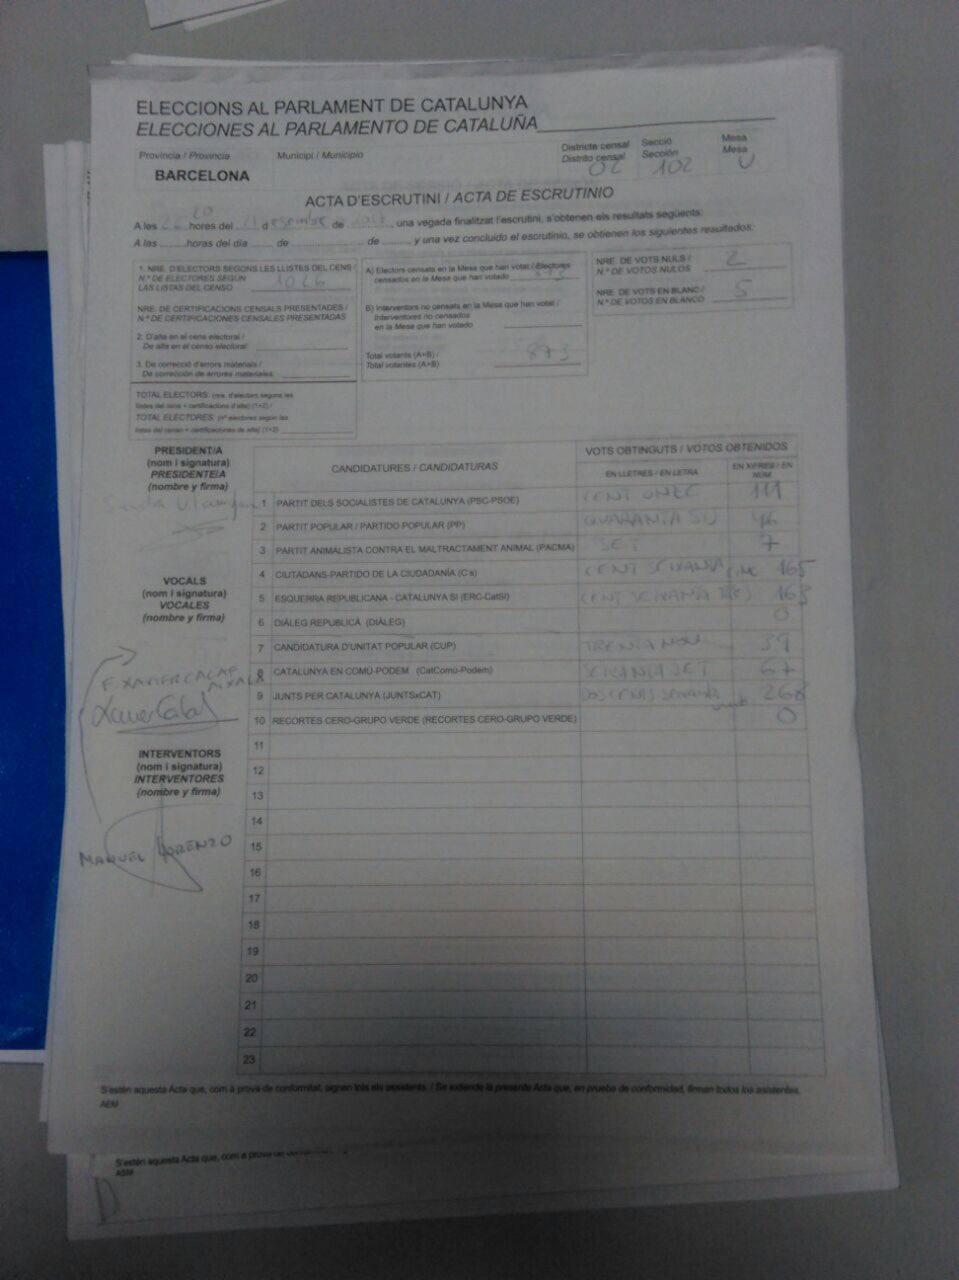 ELECCIONS AL PARLAMENT DE CATALUNYA
ELECCIONES AL PARLAMENTO DE CATALUÑA
Província / Provincia
BARCELONA
Municipi / Municipio
Districte censal
Distrito censal
02
Secció
Sección
102
Mesa
Mesa
U
ACTA D'ESCRUTINI / ACTA DE ESCRUTINIO
A les 22 20 hores del 21 d desembre de 2017, una vegada finalitzat l'escrutini, s'obtenen els resultats següents:
A las ........horas del día ..... de ........................ de ........, y una vez concluido el escrutinio, se obtienen los siguientes resultados:
1. NRE. D'ELECTORS SEGONS LES LLISTES DEL CENS /
N.º DE ELECTORES SEGÚN
LAS LISTAS DEL CENSO 1026
NRE. DE CERTIFICACIONS CENSALS PRESENTADES /
N.º DE CERTIFICACIONES CENSALES PRESENTADAS
2. D'alta en el cens electoral /
De alta en el censo electoral:
3. De correcció d'errors materials /
De corrección de errores materiales:
TOTAL ELECTORS: (nre. d'electors segons les
llistes del cens + certificacions d'alta) (1+2) /
TOTAL ELECTORES: (nº electores según las
listas del censo + certificaciones de alta) (1+2)
A) Electors censats en la Mesa que han votat / Electores
censados en la Mesa que han votado 873
B) Interventors no censats en la Mesa que han votat /
Interventores no censados
en la Mesa que han votado
Total votants (A+B) /
Total votantes (A+B) 873
NRE. DE VOTS NULS /
N.º DE VOTOS NULOS 2
NRE. DE VOTS EN BLANC /
N.º DE VOTOS EN BLANCO 5
PRESIDENT/A
(nom i signatura)
PRESIDENTE/A
(nombre y firma)
VOCALS
(nom i signatura)
VOCALES
(nombre y firma)
F. XAVIER
INTERVENTORS
(nom i signatura)
INTERVENTORES
(nombre y firma)
MANUEL LORENZO
CANDIDATURES / CANDIDATURAS
VOTS OBTINGUTS / VOTOS OBTENIDOS
EN LLETRES / EN LETRA
EN XIFRES / EN NÚM
1 PARTIT DELS SOCIALISTES DE CATALUNYA (PSC-PSOE) CENT ONZE 111
2 PARTIT POPULAR / PARTIDO POPULAR (PP) QUARANTA SIS 46
3 PARTIT ANIMALISTA CONTRA EL MALTRACTAMENT ANIMAL (PACMA) SET 7
4 CIUTADANS-PARTIDO DE LA CIUDADANÍA (C's) CENT SEIXANTA CINC 165
5 ESQUERRA REPUBLICANA - CATALUNYA SÍ (ERC-CatSí) CENT SEIXANTA TRES 163
6 DIÀLEG REPUBLICÀ (DIÀLEG) 0
7 CANDIDATURA D'UNITAT POPULAR (CUP) TRENTA NOU 39
8 CATALUNYA EN COMÚ-PODEM (CatComú-Podem) SEIXANTA SET 67
9 JUNTS PER CATALUNYA (JUNTSxCAT) DOSCENTS SEIXANTA vuit 268
10 RECORTES CERO-GRUPO VERDE (RECORTES CERO-GRUPO VERDE) 0
11
12
13
14
15
16
17
18
19
20
21
22
23
S'estén aquesta Acta que, com a prova de conformitat, signen tots els assistents. / Se extiende la presente Acta que, en prueba de conformidad, firman todos los asistentes.
AEM
S'estén aquesta Acta que, com a prova de